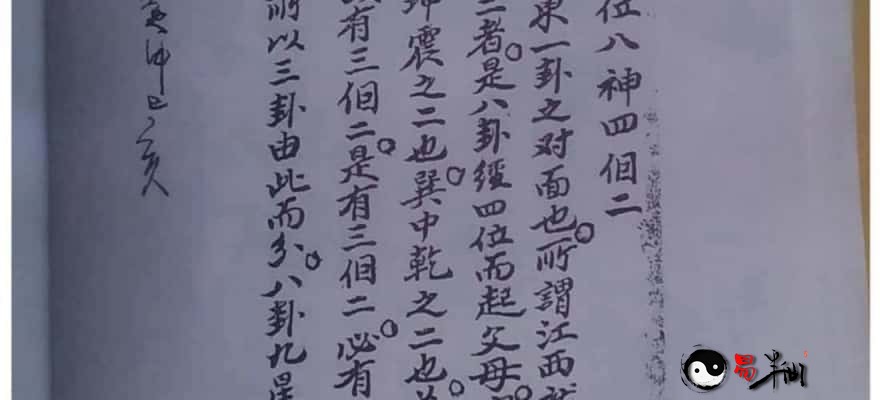 位八神四個二
東一卦之对面也。所謂江西
二者。是八卦經四位而起父母
震之二也。巽中乾之二也。
有三個二。是有三個二。必有
所以三卦由此而分。八卦九星
巳亥
易半仙